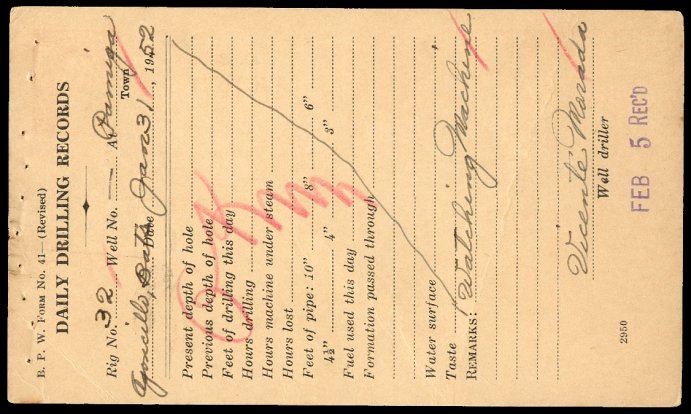 B. P. W. FORM NO. 41—(Revised)
DAILY DRILLING RECORDS
Rig No. 32 Well No. — At Pamiga
Town
Agoncillo, Bats. Date Jan 31, 1952
Present depth of hole
Previous depth of hole
Feet of drilling this day
Hours drilling
Hours machine under steam
Hours lost
Feet of pipe: 10" 8" 6"
4½" 4" 3"
Fuel used this day
Formation passed through
Water surface
Taste
REMARKS: Watching Machine
Vicente Morada
Well driller
FEB 5 REC'D
2950